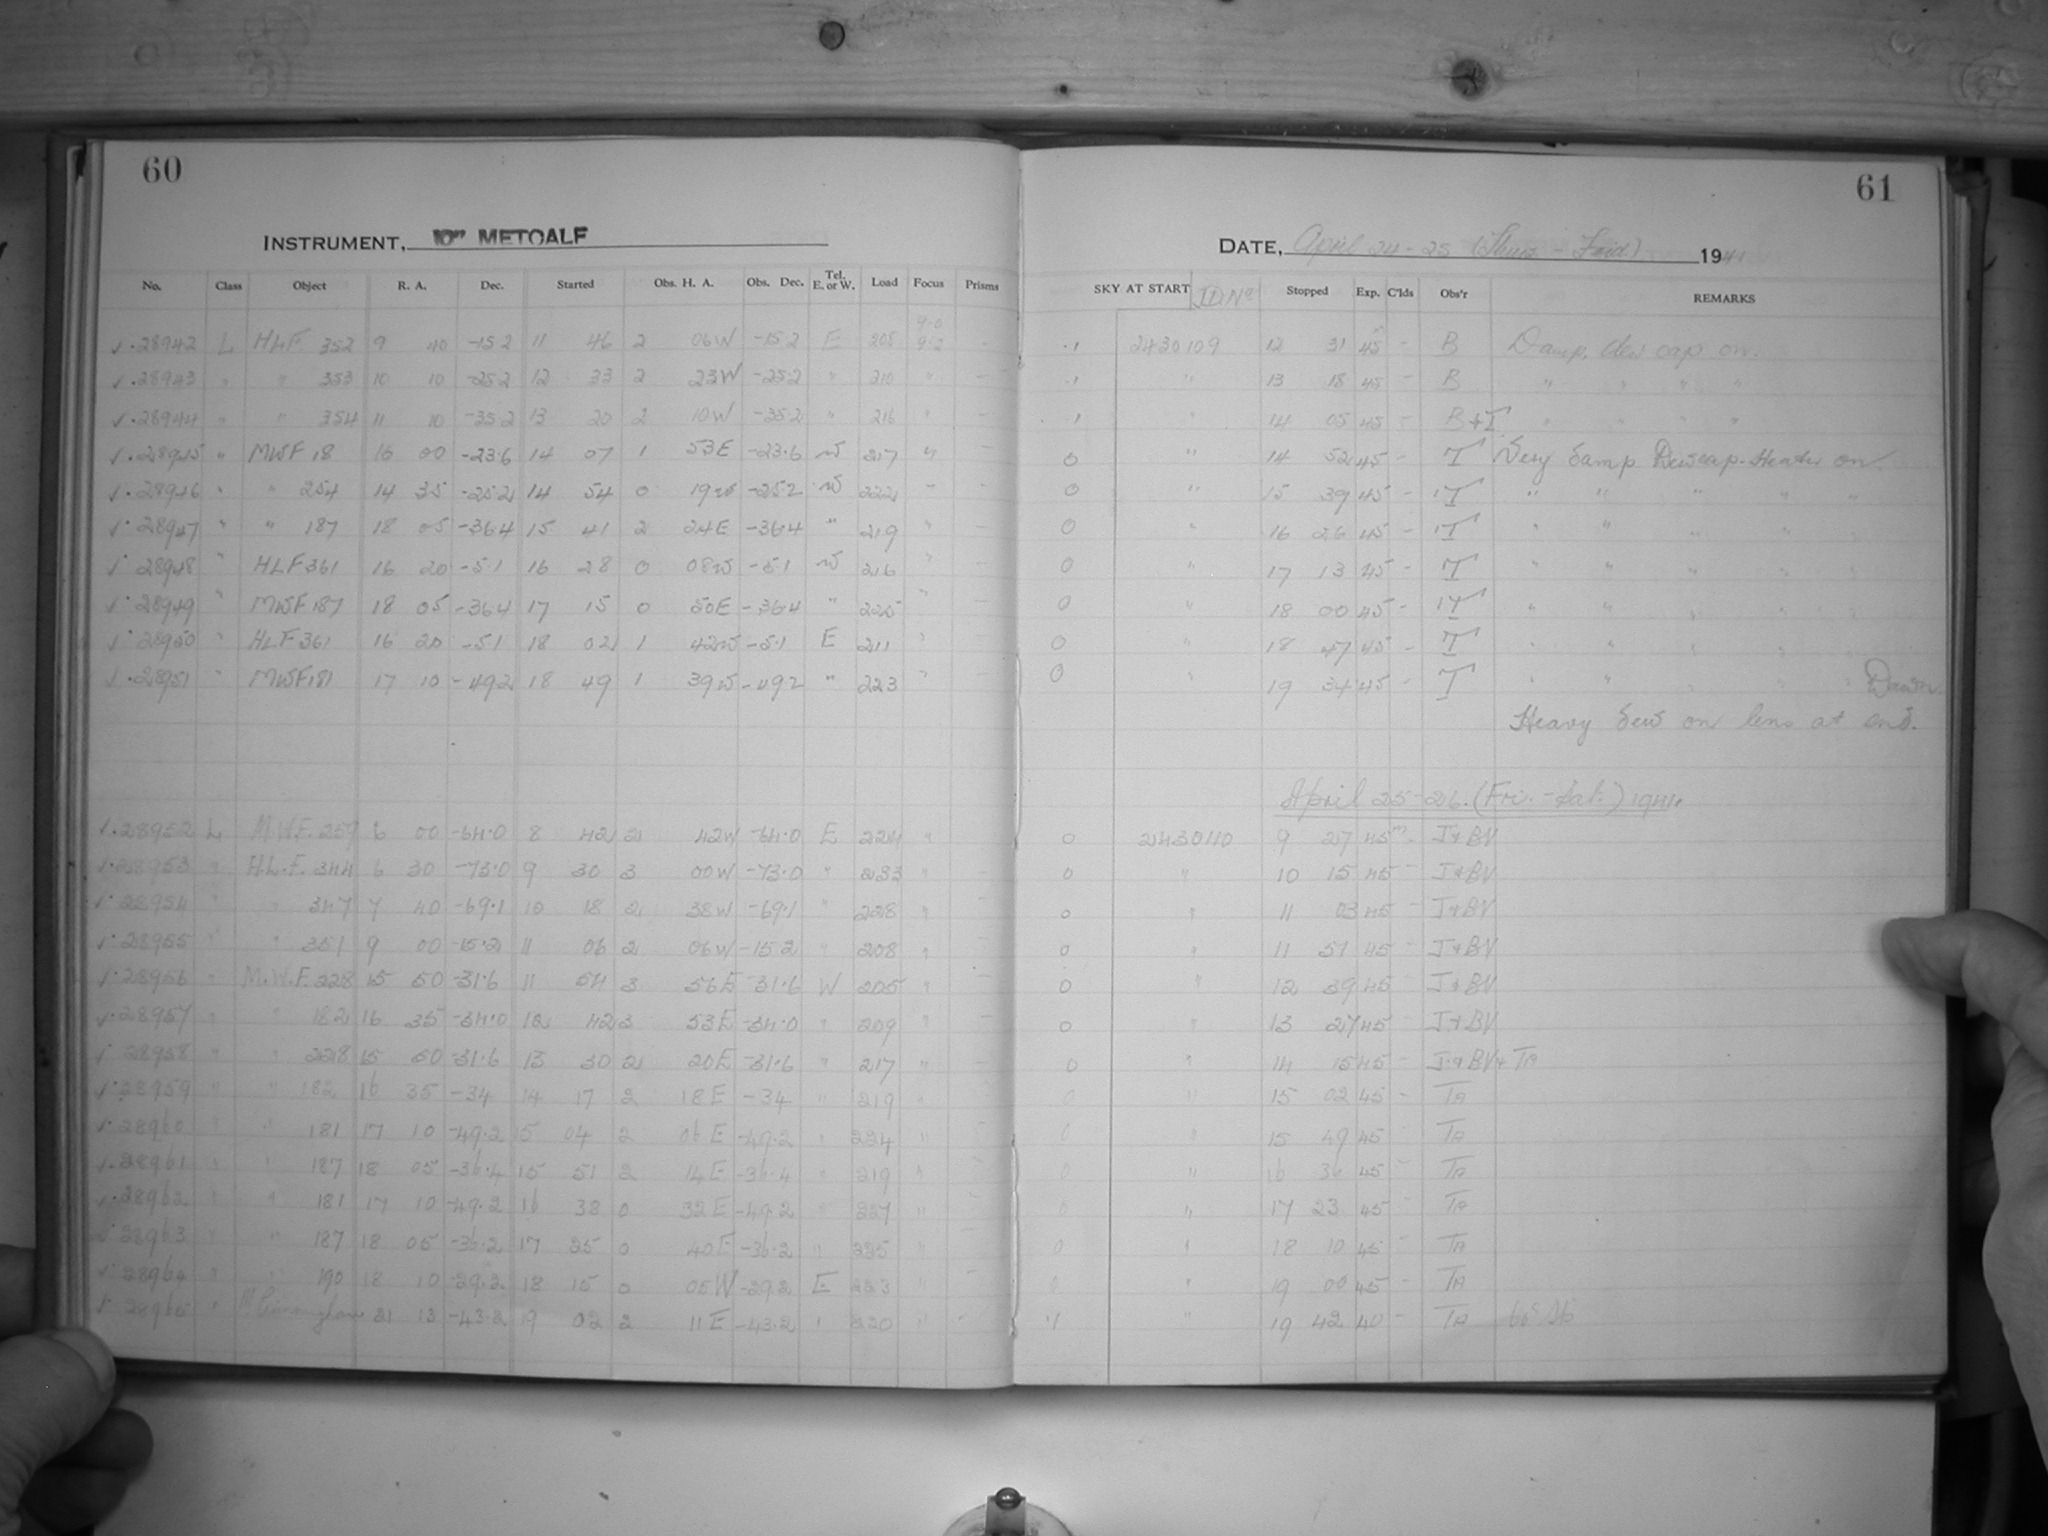 60
INSTRUMENT, 10" METCALF
No. Class Object R. A. Dec. Started Obs. H. A. Obs. Dec. Tel. E. or W. Load Focus Prisms
9.0
28942 L HLF 352 9 40 -15.2 11 46 2 06W -15.2 E 205 9.2 -
28943 " " 353 10 10 -25.2 12 33 2 23W -25.2 " 210 " -
28944 " " 354 11 10 -35.2 13 20 2 10W -35.2 " 216 " -
28945 " MWF 18 16 00 -23.6 14 07 1 53E -23.6 W 217 " -
28946 " " 254 14 35 -25.2 14 54 0 19W -25.2 W 222 " -
28947 " " 187 18 05 -36.4 15 41 2 24E -36.4 " 219 " -
28948 " HLF 361 16 20 -5.1 16 28 0 08W -5.1 W 216 " -
28949 " MWF 187 18 05 -36.4 17 15 0 50E -36.4 " 225 " -
28950 " HLF 361 16 20 -5.1 18 02 1 42W -5.1 E 211 " -
28951 " MWF 181 17 10 -49.2 18 49 1 39W -49.2 " 223 " -
28952 L M.W.F. 259 6 00 -64.0 8 42 2 42W -64.0 E 224 "
28953 " H.L.F. 344 6 30 -73.0 9 30 3 00W -73.0 " 233 " -
28954 " " 347 7 40 -69.1 10 18 2 38W -69.1 " 228 " -
28955 " " 351 9 00 -15.2 11 06 2 06W -15.2 " 208 " -
28956 " M.W.F. 228 15 50 -31.6 11 54 3 56E -31.6 W 205 " -
28957 " " 182 16 35 -34.0 12 42 3 53E -34.0 " 209 " -
28958 " " 228 15 50 -31.6 13 30 2 20E -31.6 " 217 " -
28959 " " 182 16 35 -34 14 17 2 18E -34 " 219 " -
28960 " " 181 17 10 -49.2 15 04 2 06E -49.2 " 224 " -
28961 " " 187 18 05 -36.4 15 51 2 14E -36.4 " 219 " -
28962 " " 181 17 10 -49.2 16 38 0 32E -49.2 " 227 " -
28963 " " 187 18 05 -36.2 17 25 0 40E -36.2 " 225 " -
28964 " " 190 18 10 -29.2 18 15 0 05W -29.2 E 223 " -
28965 " 21 13 -43.2 19 02 2 11E -43.2 " 220 " -
61
DATE, April 24-25 (Thurs - Frid.) 1941
SKY AT START JD No Stopped Exp. C'lds Obs'r REMARKS
.1 2430109 12 31 45 - B Damp. Dew cap on.
.1 " 13 18 45 - B " " " "
.1 " 14 05 45 - B+T " " " "
0 " 14 52 45 - T Very damp Dewcap-Heater on.
0 " 15 39 45 - T " " " " "
0 " 16 26 45 - T " " " " "
0 " 17 13 45 - T " " " " "
0 " 18 00 45 - T " " " " "
0 " 18 47 45 - T " " " " "
0 " 19 34 45 - T " " " " " Dawn.
Heavy dew on lens at end.
April 25-26. (Fri. - Sat.) 1941.
0 2430110 9 27 45m - J+BV
0 " 10 15 45 - J+BV
0 " 11 03 45 - J+BV
0 " 11 51 45 - J+BV
0 " 12 39 45 - J+BV
0 " 13 27 45 - J+BV
0 " 14 15 45 - J+BV+TA
0 " 15 02 45 - TA
0 " 15 49 45 - TA
0 " 16 36 45 - TA
0 " 17 23 45 - TA
0 " 18 10 45 - TA
0 " 19 00 45 - TA
.1 " 19 42 40 - TA